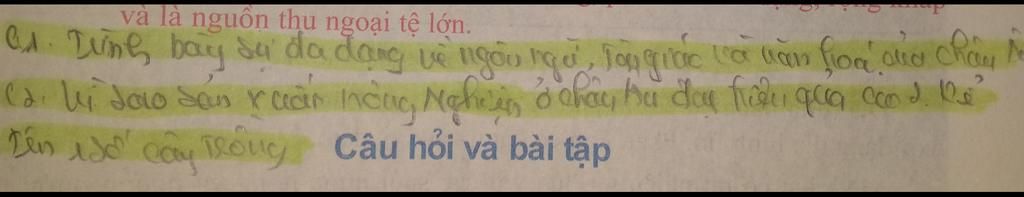 và là nguồn thu ngoại tệ lớn.
C1. Trình bày sự đa dạng về ngôn ngữ, Tôn giáo và văn hoá của châu
C2. Vì sao sản xuất nông Nghiệp ở châu Âu đạt hiệu quả cao? Kể
tên số cây Trồng
Câu hỏi và bài tập